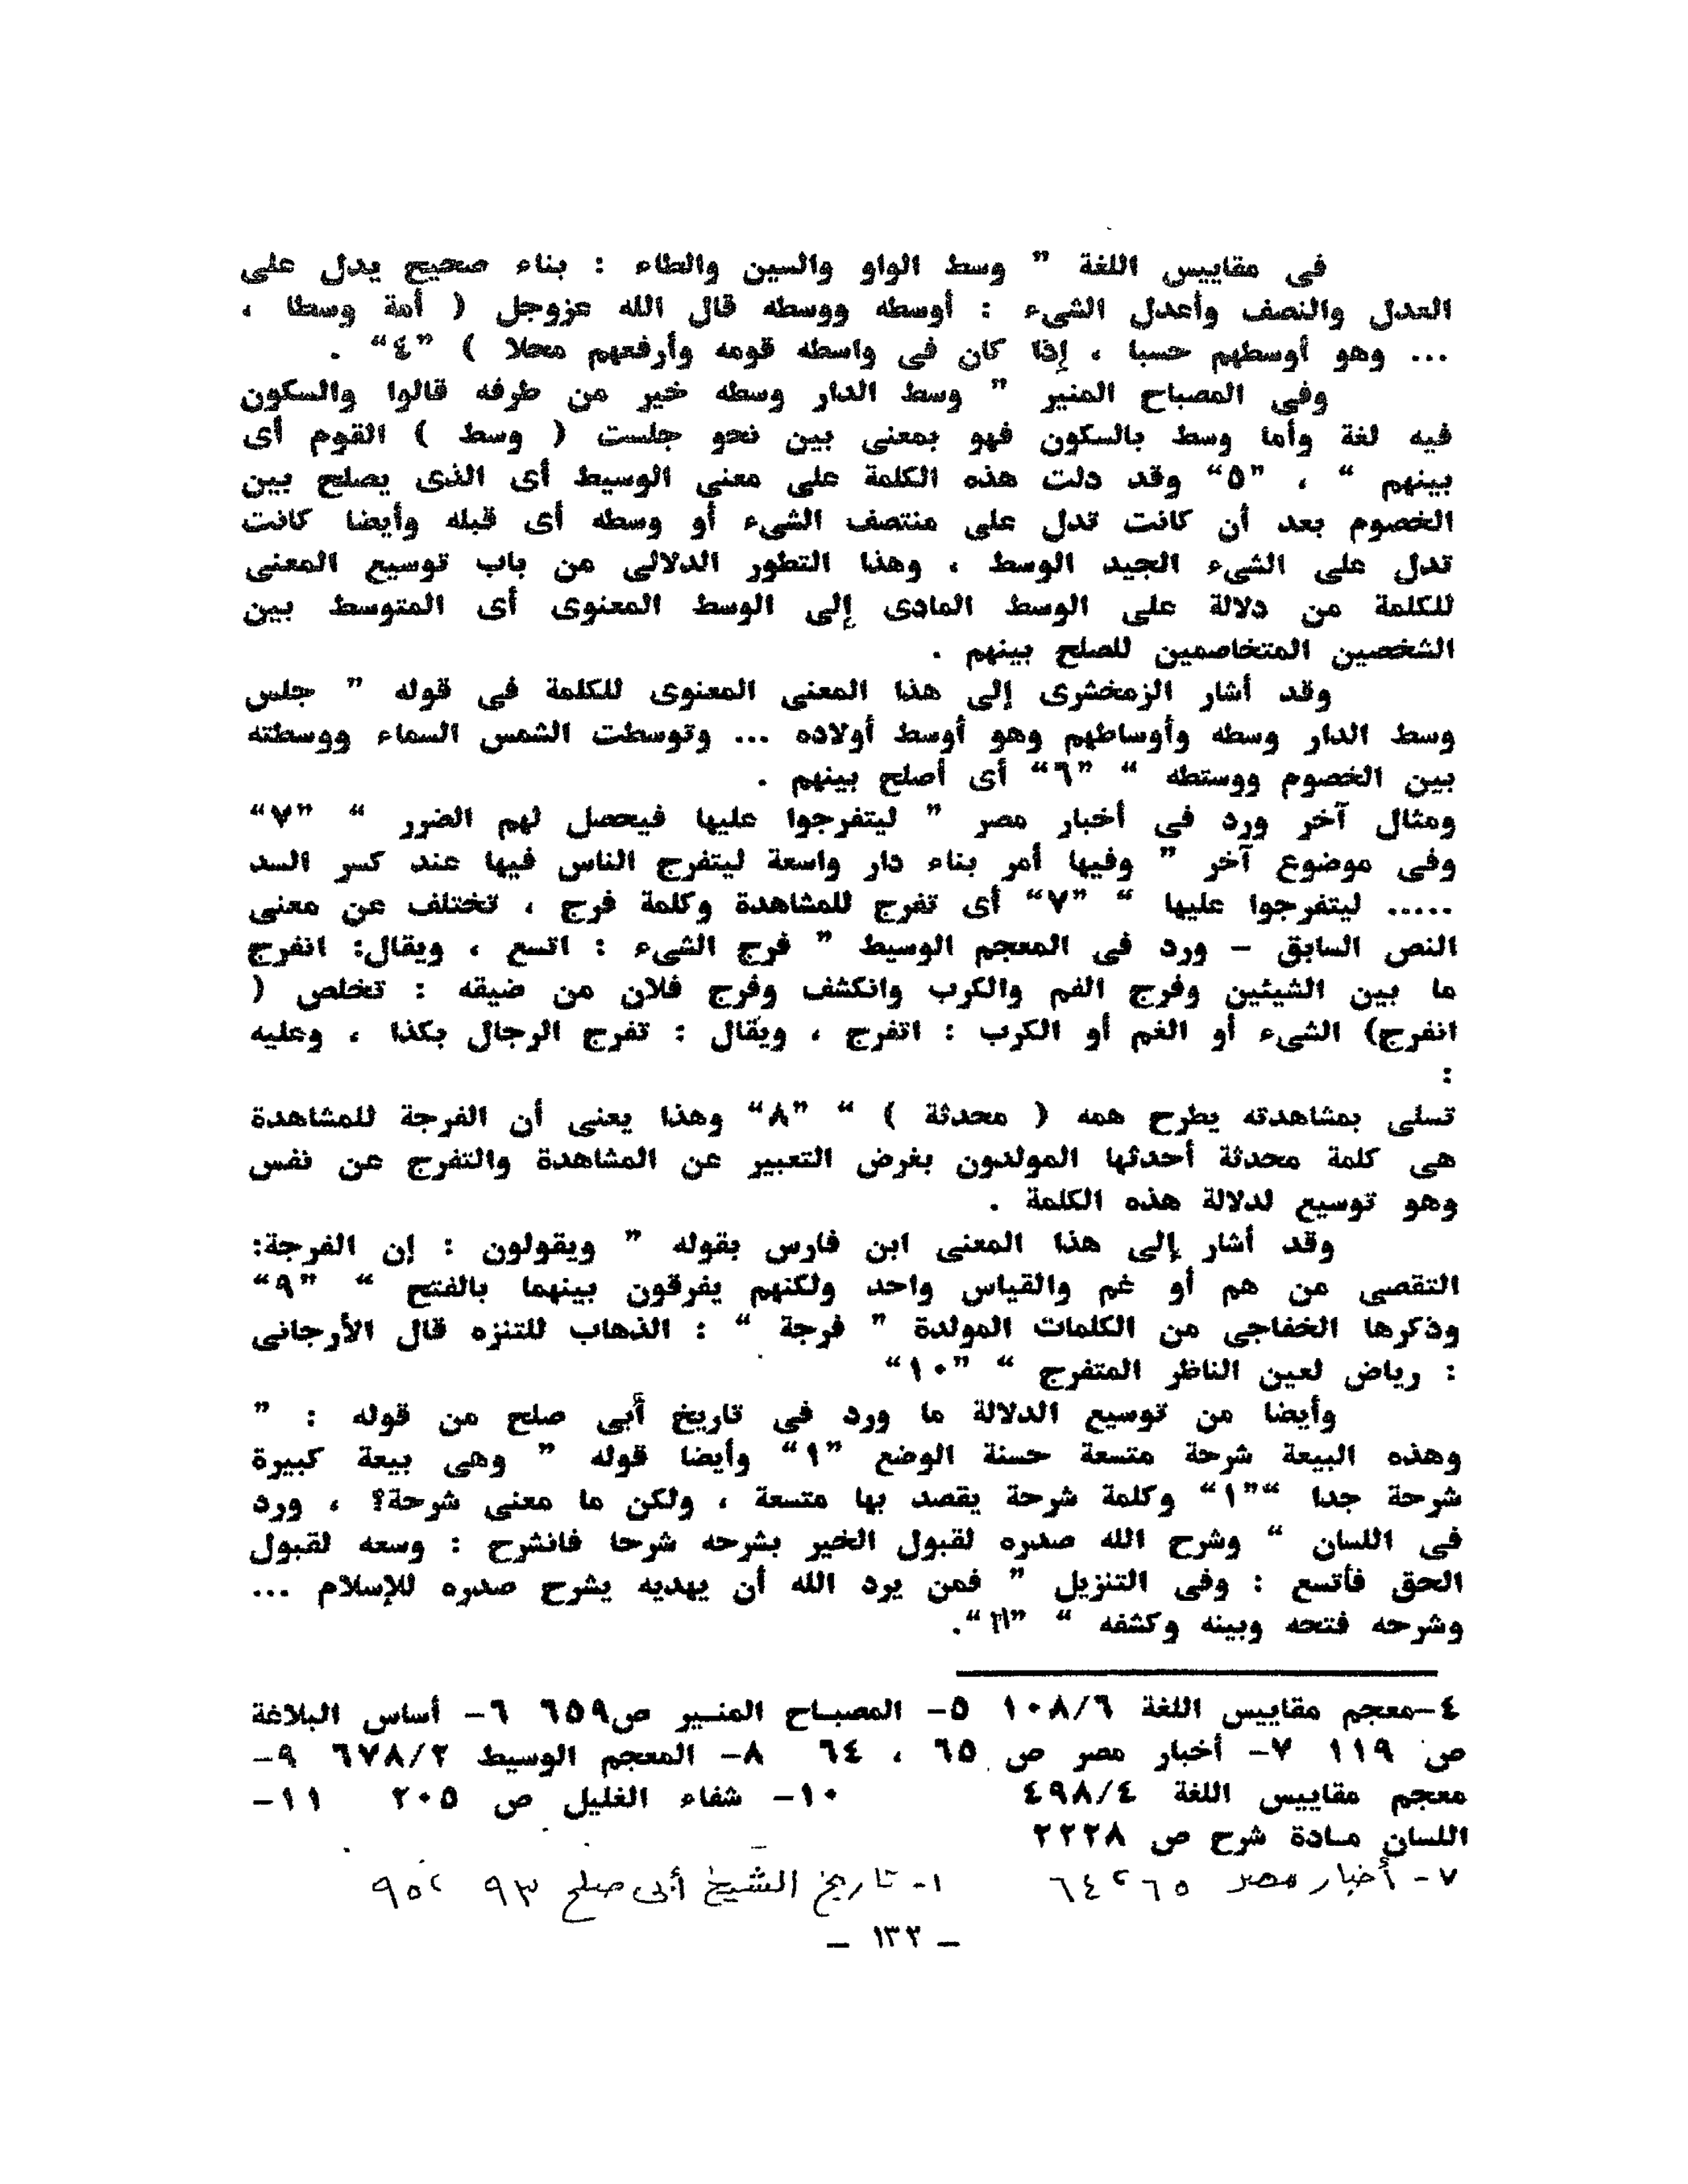 فى مقاييس اللغة " وسط الواو والسين والطاء : بناء صحيح يدل على
العدل والنصف وأعدل الشىء : أوسطه ووسطه قال الله عزوجل ( أمة وسطا ،
... وهو أوسطهم حسبا ، إذا كان فى واسطه قومه وأرفعهم محلا ) "٤" .
وفى المصباح المنير " وسط الدار وسطه خير من طرفه قالوا والسكون
فيه لغة وأما وسط بالسكون فهو بمعنى بين نحو جلست ( وسط ) القوم أى
بينهم " ، "٥" وقد دلت هذه الكلمة على معنى الوسيط أى الذى يصلح بين
الخصوم بعد أن كانت تدل على منتصف الشىء أو وسطه أى قبله وأيضا كانت
تدل على الشىء الجيد الوسط ، وهذا التطور الدلالى من باب توسيع المعنى
للكلمة من دلالة على الوسط المادى إلى الوسط المعنوى أى المتوسط بين
الشخصين المتخاصمين للصلح بينهم .
وقد أشار الزمخشرى إلى هذا المعنى المعنوى للكلمة فى قوله " جلس
وسط الدار وسطه وأوساطهم وهو أوسط أولاده ... وتوسطت الشمس السماء ووسطته
بين الخصوم ووستطه " "٦" أى أصلح بينهم .
ومثال آخر ورد فى أخبار مصر " ليتفرجوا عليها فيحصل لهم الضرر " "٧"
وفى موضوع آخر " وفيها أمر بناء دار واسعة ليتفرج الناس فيها عند كسر السد
..... ليتفرجوا عليها " "٧" أى تفرج للمشاهدة وكلمة فرج ، تختلف عن معنى
النص السابق – ورد فى المعجم الوسيط " فرج الشىء : اتسع ، ويقال: انفرج
ما بين الشيئين وفرج الفم والكرب وانكشف وفرج فلان من ضيقه : تخلص (
انفرج) الشىء أو الغم أو الكرب : اتفرج ، ويقال : تفرج الرجال بكذا ، وعليه
:
تسلى بمشاهدته يطرح همه ( محدثة ) " "٨" وهذا يعنى أن الفرجة للمشاهدة
هى كلمة محدثة أحدثها المولدون بغرض التعبير عن المشاهدة والتفرج عن نفس
وهو توسيع لدلالة هذه الكلمة .
وقد أشار إلى هذا المعنى ابن فارس بقوله " ويقولون : إن الفرجة:
التقصى من هم أو غم والقياس واحد ولكنهم يفرقون بينهما بالفتح " "٩"
وذكرها الخفاجى من الكلمات المولدة " فرجة " : الذهاب للتنزه قال الأرجانى
: رياض لعين الناظر المتفرج " "١٠"
وأيضا من توسيع الدلالة ما ورد فى تاريخ أبى صلح من قوله : "
وهذه البيعة شرحة متسعة حسنة الوضع "١" وأيضا قوله " وهى بيعة كبيرة
شرحة جدا ""١" وكلمة شرحة يقصد بها متسعة ، ولكن ما معنى شرحة؟ ، ورد
فى اللسان " وشرح الله صدره لقبول الخير بشرحه شرحا فانشرح : وسعه لقبول
الحق فأتسع : وفى التنزيل " فمن يرد الله أن يهديه يشرح صدره للإسلام ...
وشرحه فتحه وبينه وكشفه " "١١".
٤-معجم مقاييس اللغة ١٠٨/٦ ٥- المصباح المنير ص٦٥٩ ٦- أساس البلاغة
ص ١١٩ ٧- أخبار مصر ص ٦٥ ، ٦٤ ٨- المعجم الوسيط ٦٧٨/٢ ٩-
معجم مقاييس اللغة ٤٩٨/٤ ١٠- شفاء الغليل ص ٢٠٥ ١١-
اللسان مادة شرح ص ٢٢٢٨
٧- أخبار مصر ٦٥، ٦٤ ١- تاريخ الشيخ أبى صلح ٩٣ ، ٩٥
– ١٣٢ –